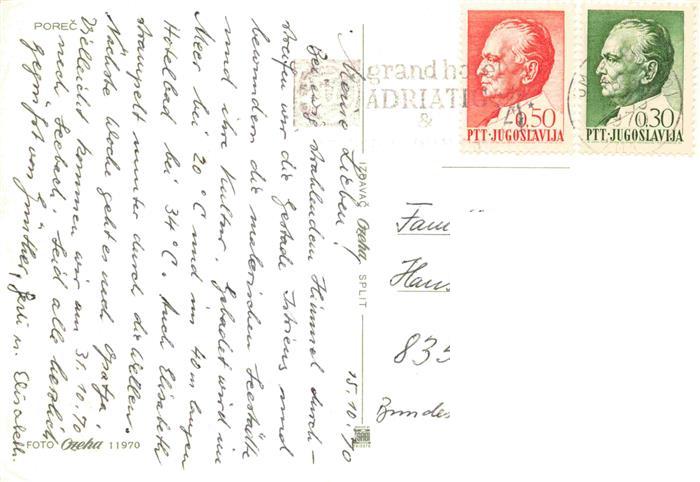 POREČ
15.10.70
Meine Lieben!
Bei strahlendem Himmel durch-
streifen wir die Gestade Istriens und
bewundern die malerischen Seestädte
und ihre Kultur. Gebadet wird im
Meer bei 20°C und im 40 m langen
Hotelbad bei 34°C. Auch Elisabeth
strampelt munter durch die Wellen.
Nächste Woche geht es nach Opatja.
Vielleicht kommen wir am 31.10.70
nach Seebach. Seid alle herzlich
gegrüßt von Günther, u. Elisabeth.
FOTO Ozeha 11970
IZDAVAČ Ozeha SPLIT
grand ho
ADRIATI
&
0.50
PTT·JUGOSLAVIJA
0.30
PTT·JUGOSLAVIJA
Fam
Han
835
Bundes